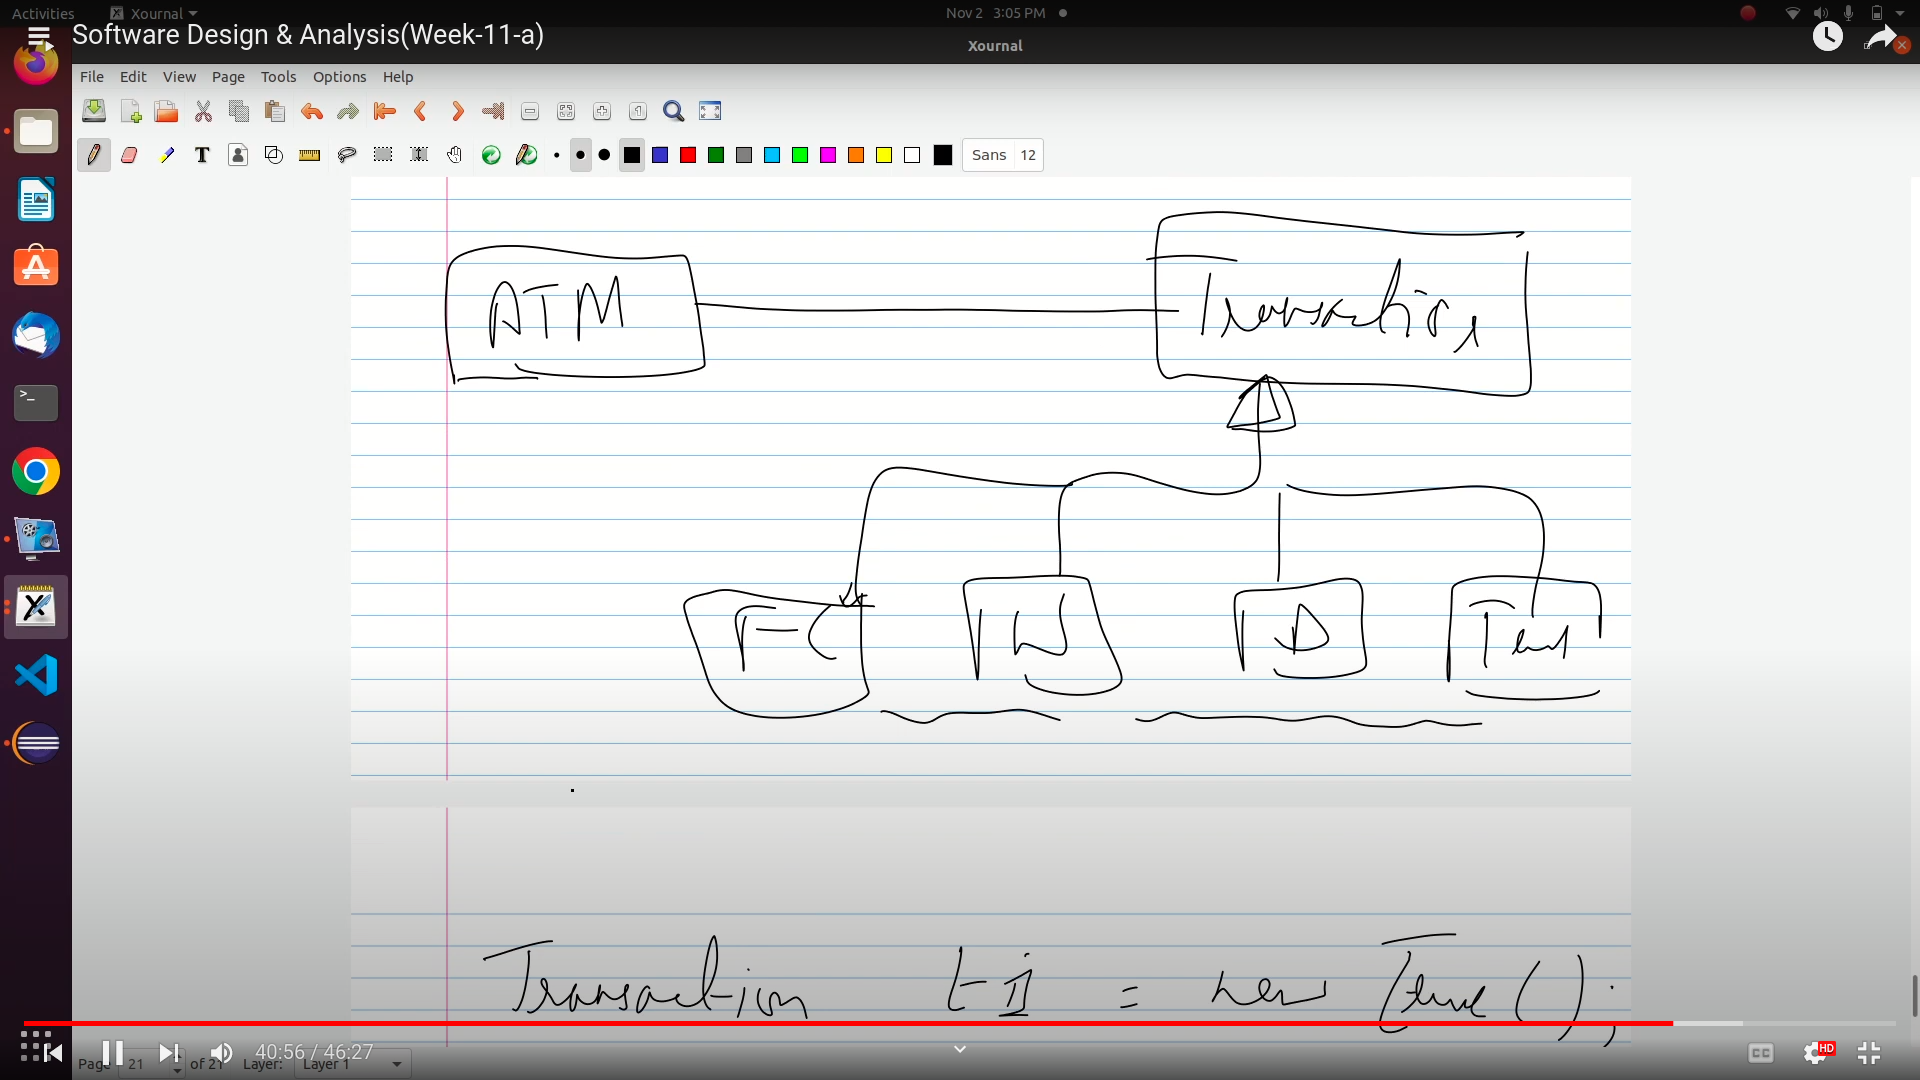 Activities Xournal Nov 2 3:05 PM
Software Design & Analysis(Week-11-a)
Xournal
File Edit View Page Tools Options Help
Sans 12
ATM
Transaction
FC W D
Transaction = new
40:56 / 46:27
HD
Page 21 of 21 Layer: Layer 1